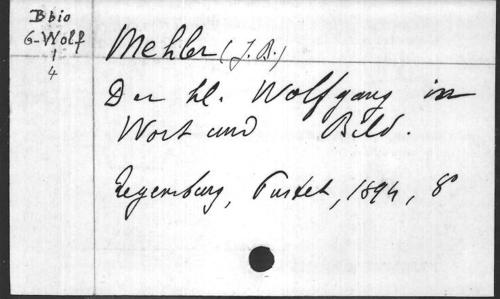 B bio
G-Wolf
1
4
Mehler (J. B.)
Der hl. Wolfgang in
Wort und Bild.
Regensburg, Pustet, 1894, 8°